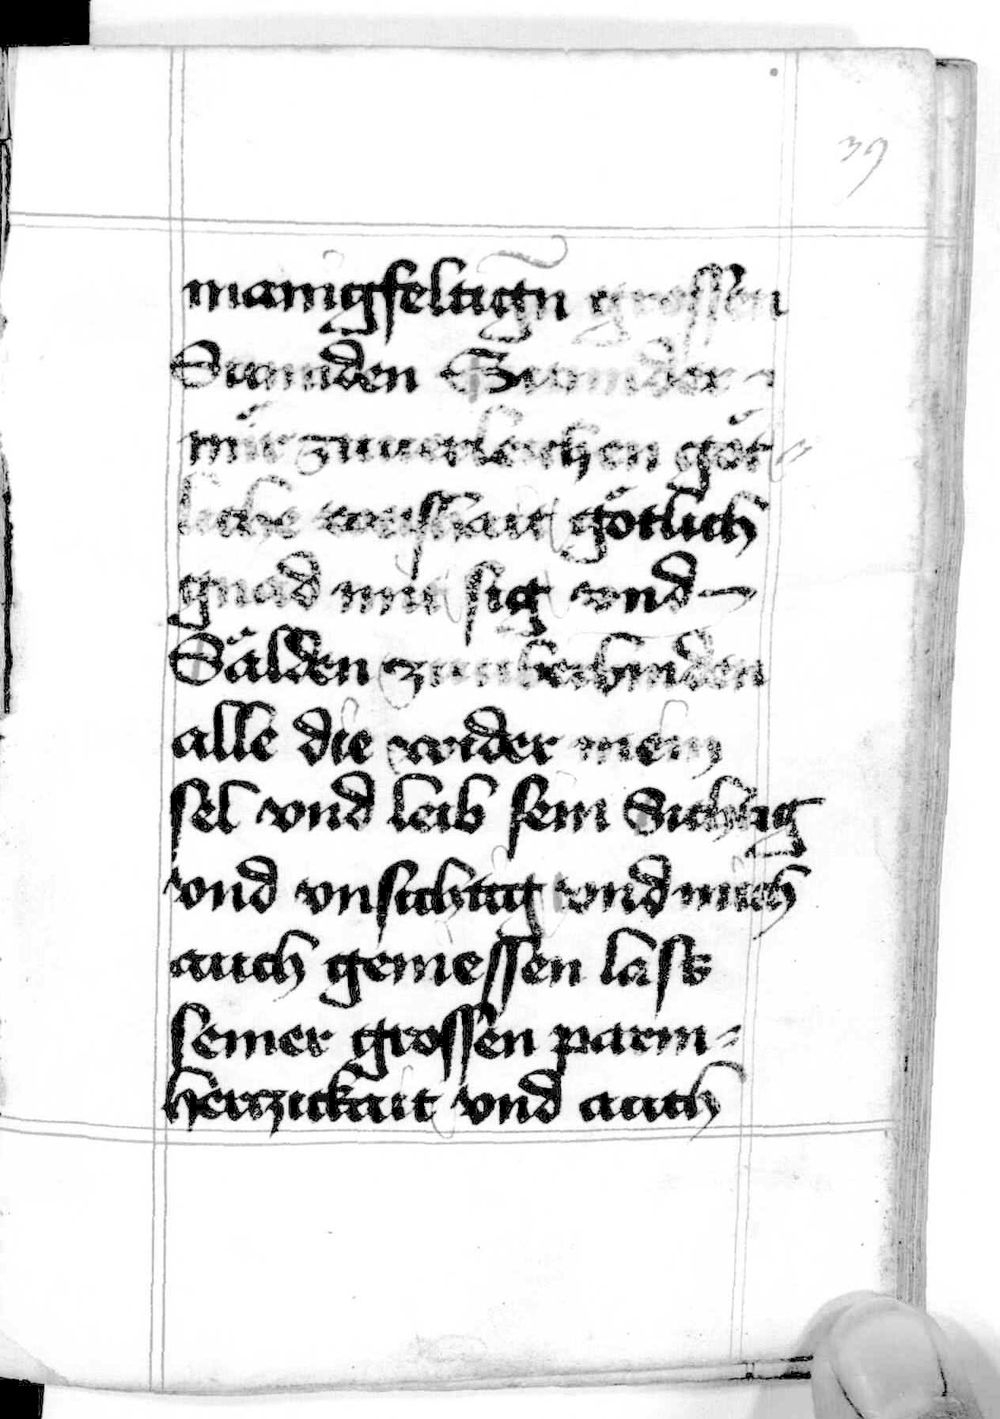 39
manigfeltigñ grossen
Sunnden Besunnder
mir zuuerleichen göt=
liche weishait götlich
gnad mit sig vnd
Sälden zuuberbinden
alle die wider mein
sel vnd leib sein Sichtig
vnd vnsichtig vnd mich
auch geniessen lass
seiner grossen parm=
herczickait vnd auch